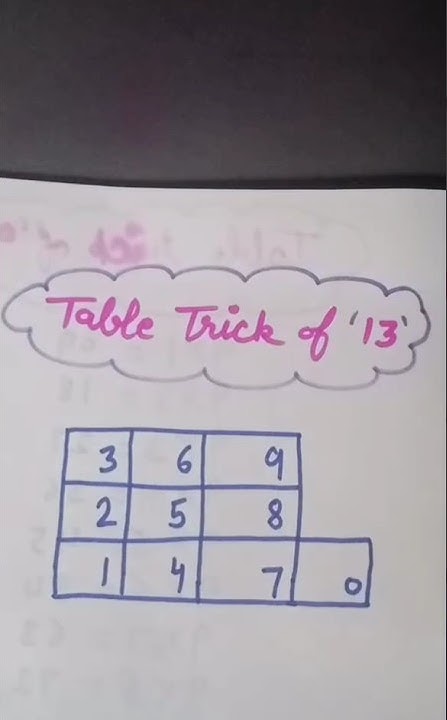 Table Trick of '13'
3 6 9
2 5 8
1 4 7 0